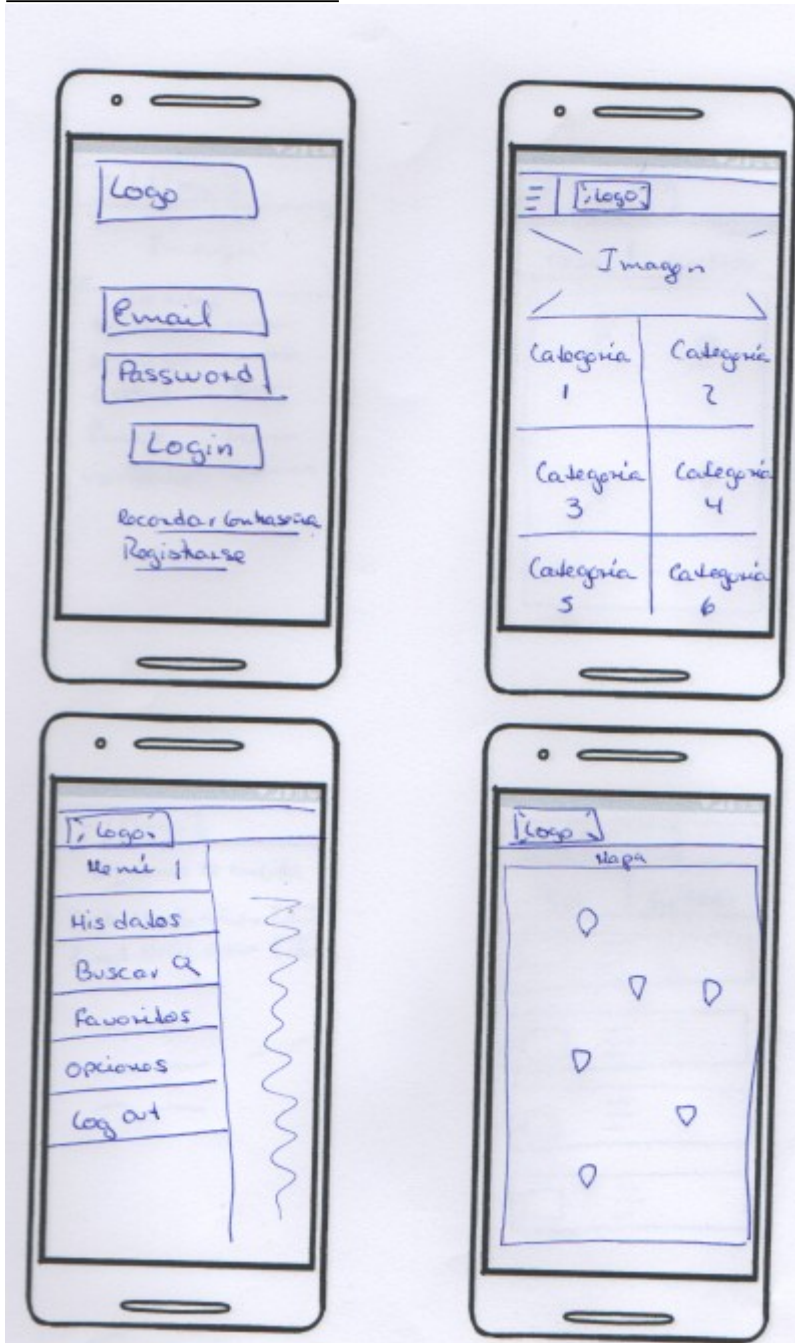 Logo
Email
Password
Login
Recordar Contraseña
Registrarse
Logo
Imagen
Categoría
1
Categoría
2
Categoría
3
Categoría
4
Categoría
5
Categoría
6
Logo
Menú
Mis datos
Buscar
Favoritos
Opciones
Log out
Logo
Mapa